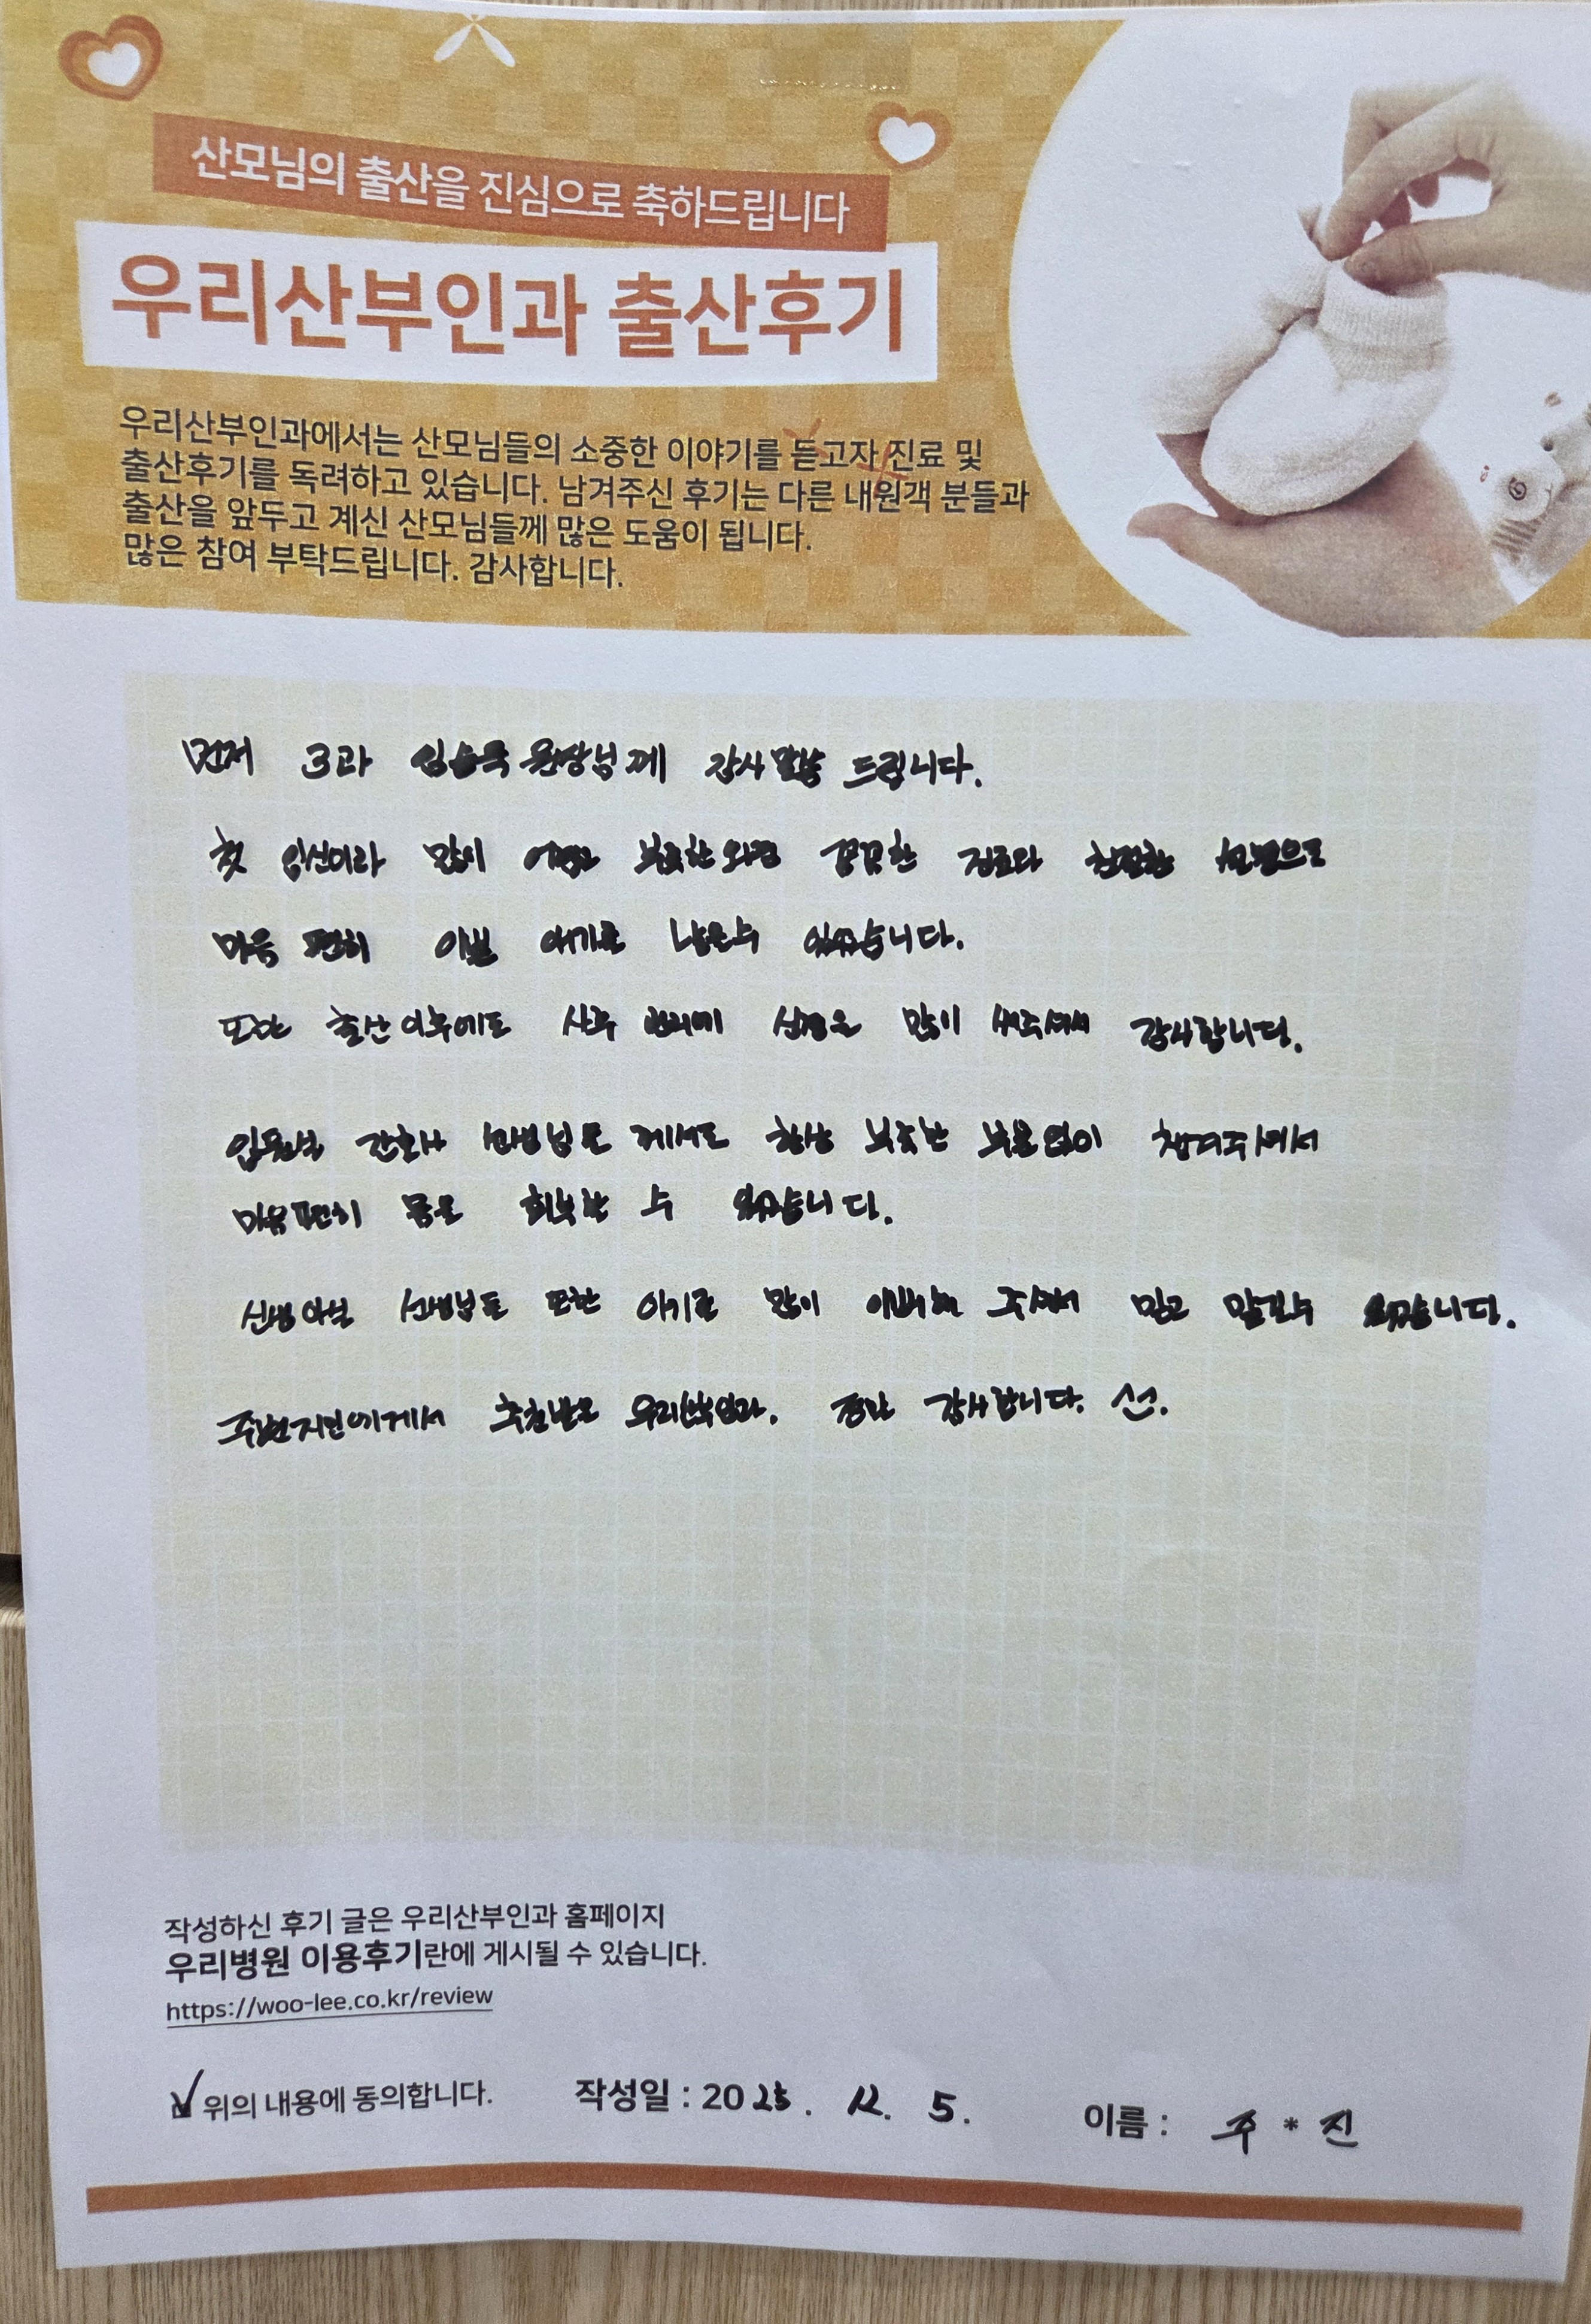 산모님의 출산을 진심으로 축하드립니다
우리산부인과 출산후기
우리산부인과에서는 산모님들의 소중한 이야기를 듣고자 진료 및
출산후기를 독려하고 있습니다. 남겨주신 후기는 다른 내원객 분들과
출산을 앞두고 계신 산모님들께 많은 도움이 됩니다.
많은 참여 부탁드립니다. 감사합니다.
먼저 3과 원장님께 감사말씀 드립니다.
첫 임신이라 많이 부족한 꼼꼼한 진료와 친절한 설명으로
마음 편히 이쁜 애기를 낳을수 있었습니다.
또한 출산이후에도 산후 관리에 신경을 많이 써주셔서 감사합니다.
입원실 간호사 선생님들 께서도 항상 부족한 부분없이 챙겨주셔서
마음편히 몸을 회복할 수 있었습니다.
신생아실 선생님들 또한 아기를 많이 이뻐해 주셔서 믿고 맡길수 있었습니다.
주변지인에게서 추천받은 우리산부인과. 정말 감사합니다.
작성하신 후기 글은 우리산부인과 홈페이지
우리병원 이용후기란에 게시될 수 있습니다.
https://woo-lee.co.kr/review
위의 내용에 동의합니다. 작성일 : 2025. 12. 5. 이름 : 주 * 진